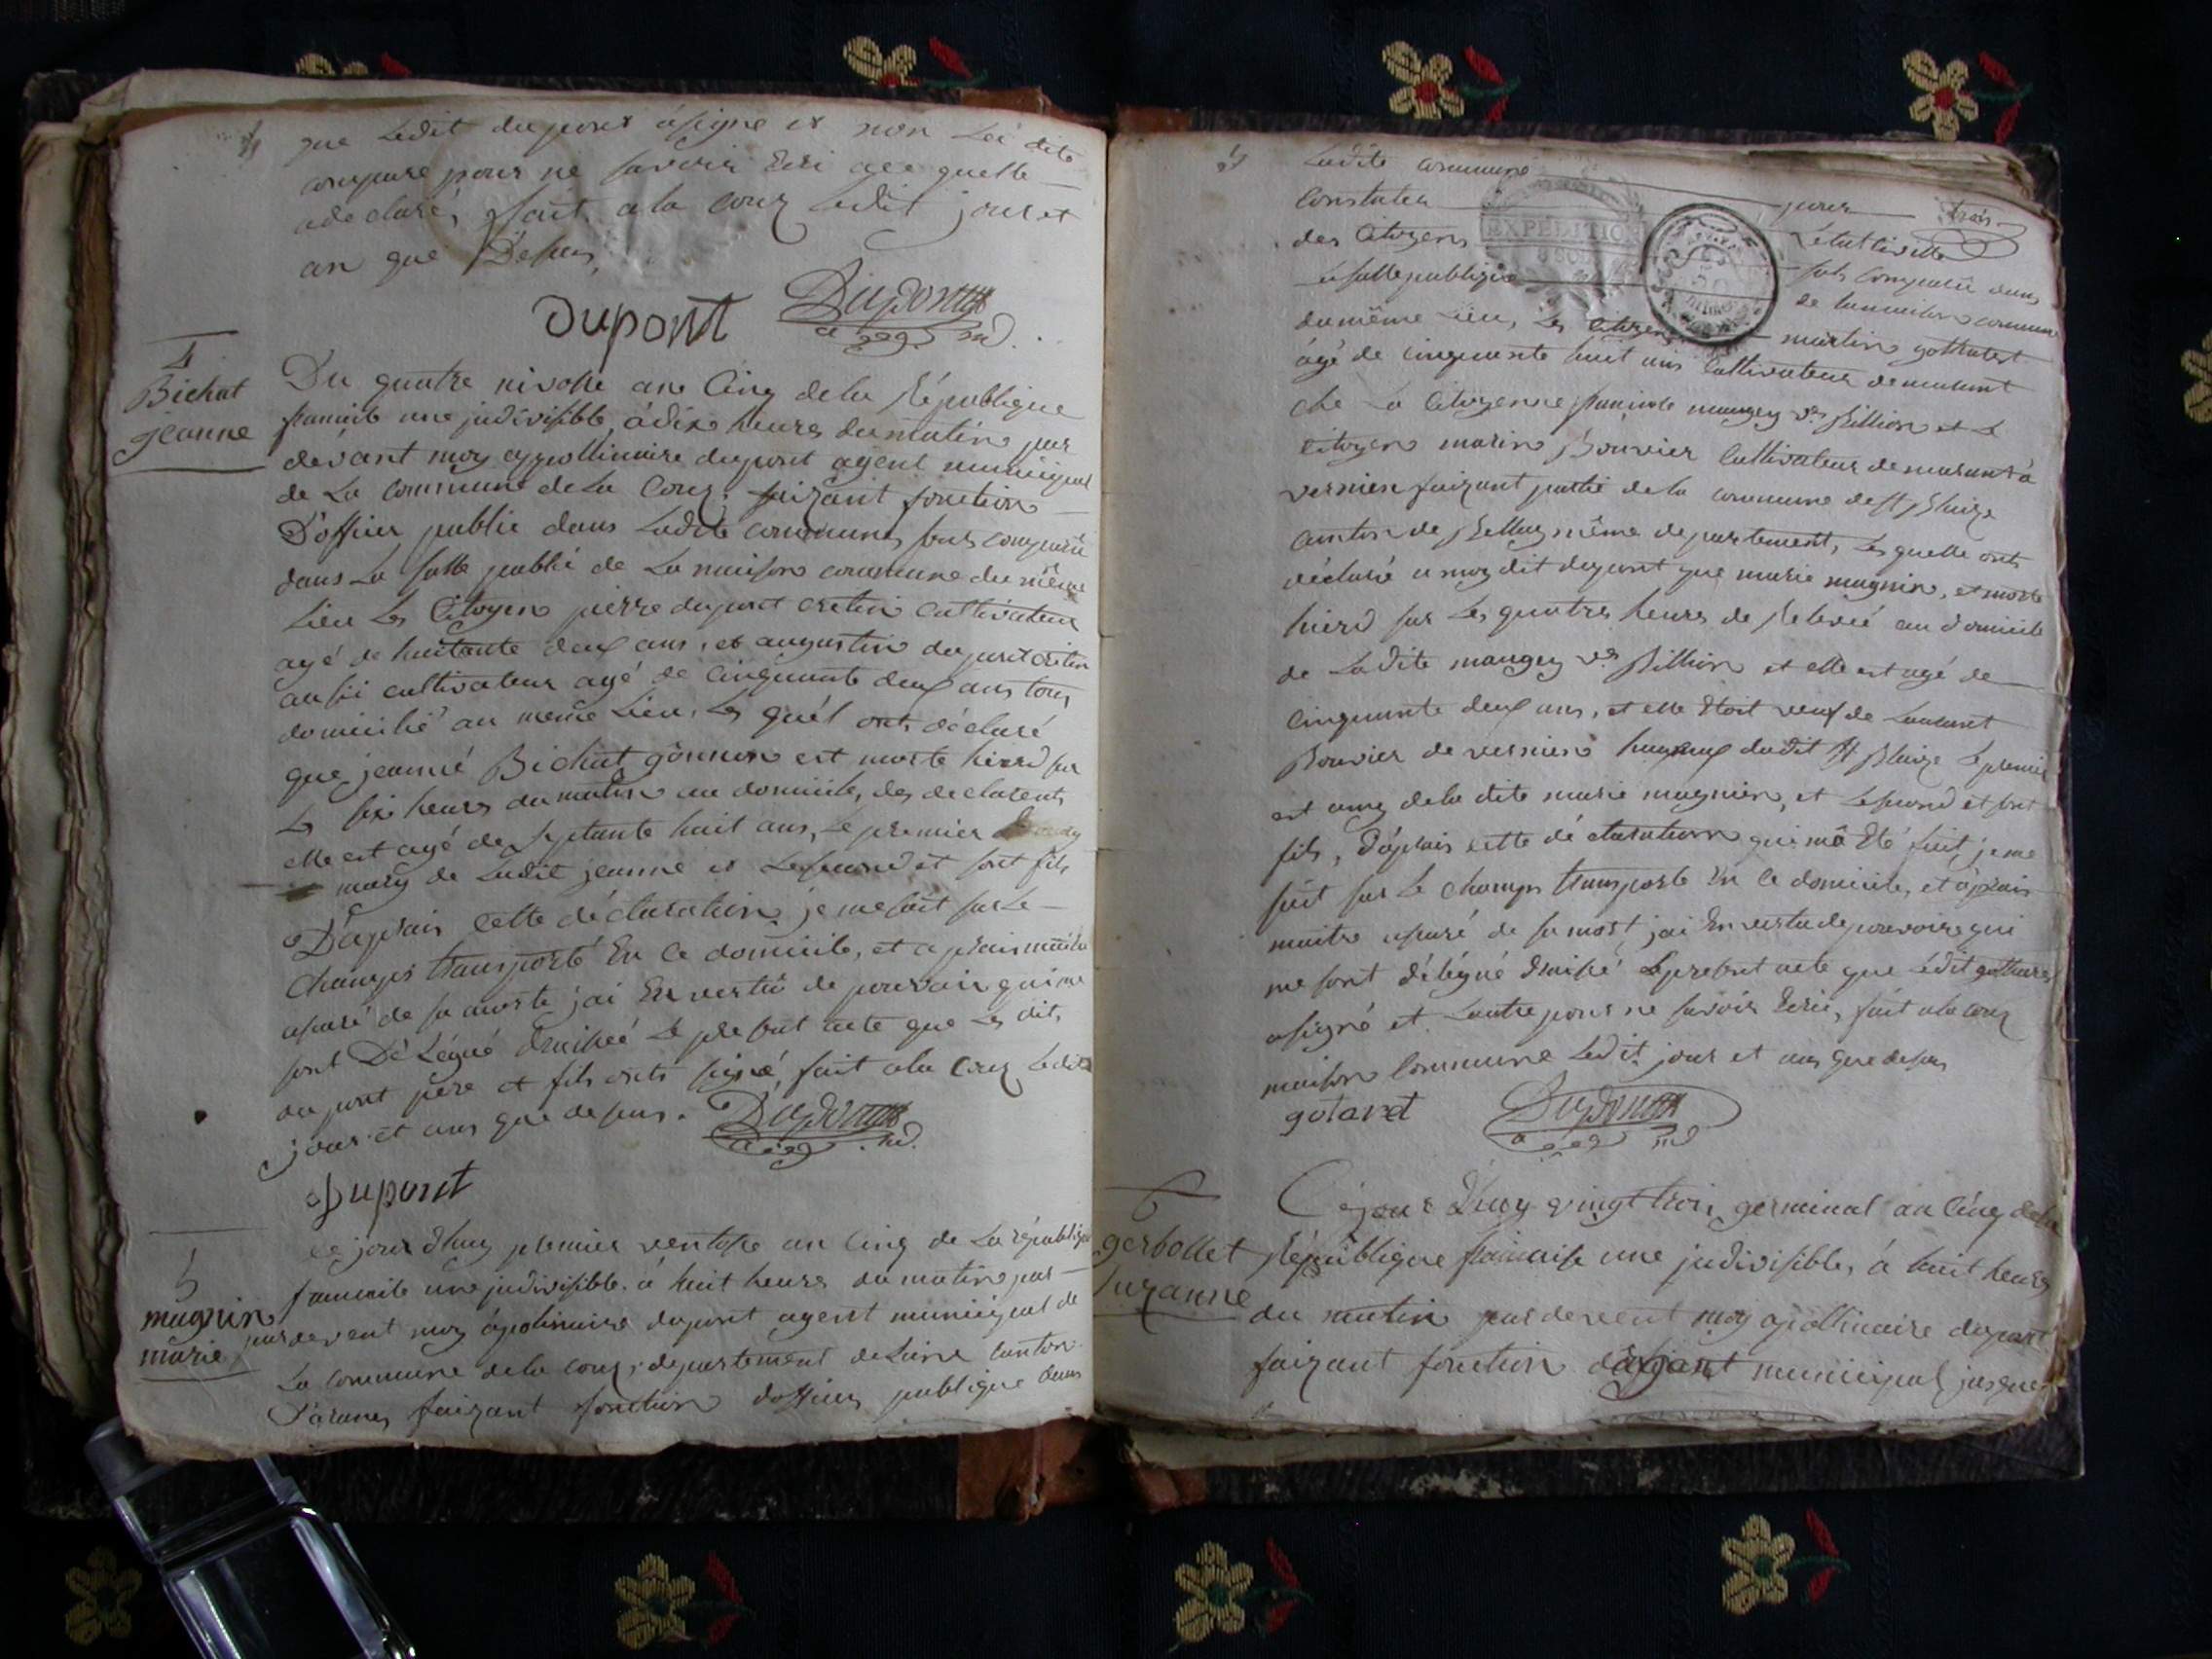 que Ledit dupont à signe et non Lei dite
compare pour ne savoir Ecri ace quelle
adeclaré, fait a la couz Ledit jour et
an que Desus,
Dupont Dupont
a ag. m.
4
Bichat
jeanne
Du quatre nivose ane Cinq de la République
francaise une judivisible, à dix heures du matin par
devant moy appollinaire dupont agent municipal
de La commune de La Couz, faizant fonction
D'officier public dans Ladite commune sons comparu
dans La salle publié de La maison commune du même
Lieu Les Citoyen pierre dupont cretin cultivateur
agé de huitante deux ans, et augustin dupont cretin
aussi cultivateur agé de cinquante deux ans tous
domicilié au meme Lieu, Les quél ont déclaré
que jeanne Bichat gonnon est morte hierd sur
Les six heures du matin au domicile, des declarents
elle est agé de septante huit ans, Le premier
mary de Ladit jeanne et Lesecond et sont fils
D'aprais cette déclaration je me suit sur Le
champs transporté En Ce domicile, et aprais maitre
asuré de sa morte jai En vertu de pouvoir qui me
sont Délégué Draissé Le present acte que Les dit,
dupont pere et fils onts signé, fait ala Couz Ledit
jour et ans que desus. Dupont
a ag. m.
Dupont
5
magnin
marie
ce jour dhuy premier ventose an Cinq de La république
francaise une judivisible. à huit heures du matin par
par devent moy àpolinaire dupont agent municipal de
La commune de la couz, departement de Lains canton
D'arane, faizant fonction dofficier publique dans
Ladite commune
Constater pour
des Citoyens L'etat civille
trois
à salle publique sons Comparu dans
de la maison commune
du même Lieu, Les Citoyen martin gottaret
àgé de cinquante huit ans Cultivateur demeurant
che La Citoyenne francoise maugey ve Billion et Le
Citoyen marin Bouvier Cultivateur demeurant à
vernien faizant partie de la commune de st Blaize
canton de Belley même departement, Les quelle onts
déclaré a moy dit dupont que marie magnin, et morte
hierd sur Les quatres heures de Relevié au domicile
de Ladite maugey ve Billion et elle est agé de
Cinquante deux ans, et elle Etoit veuf de Laurent
Bouvier de vernien dudit st Blaize Le premier
est amy de la dite marie magnien, et Lesecond et sont
fils, D'aprais cette dé claration qui mà Eté fait, je me
suit sur Le champs transporte En Ce domicile, et aprais
maitre asuré de sa mort, jai En vertu de pouvoire qui
me sont délégné draissé Le present acte que Ledit gottaret
asigné et Lautre pour ne savoir Ecri, fait ala couz
maison Commune Ledit jour et ans que desus
gotaret Dupont
a ag. m.
6
gerbollet
Suzanne
Cejour D'huy vingt trois germinal an Cinq de la
République francaise une judivisible, à huit heures
du matin par devent moy apollinaire dupont
faizant fonction d'agent municipal jusque
EXPEDITION